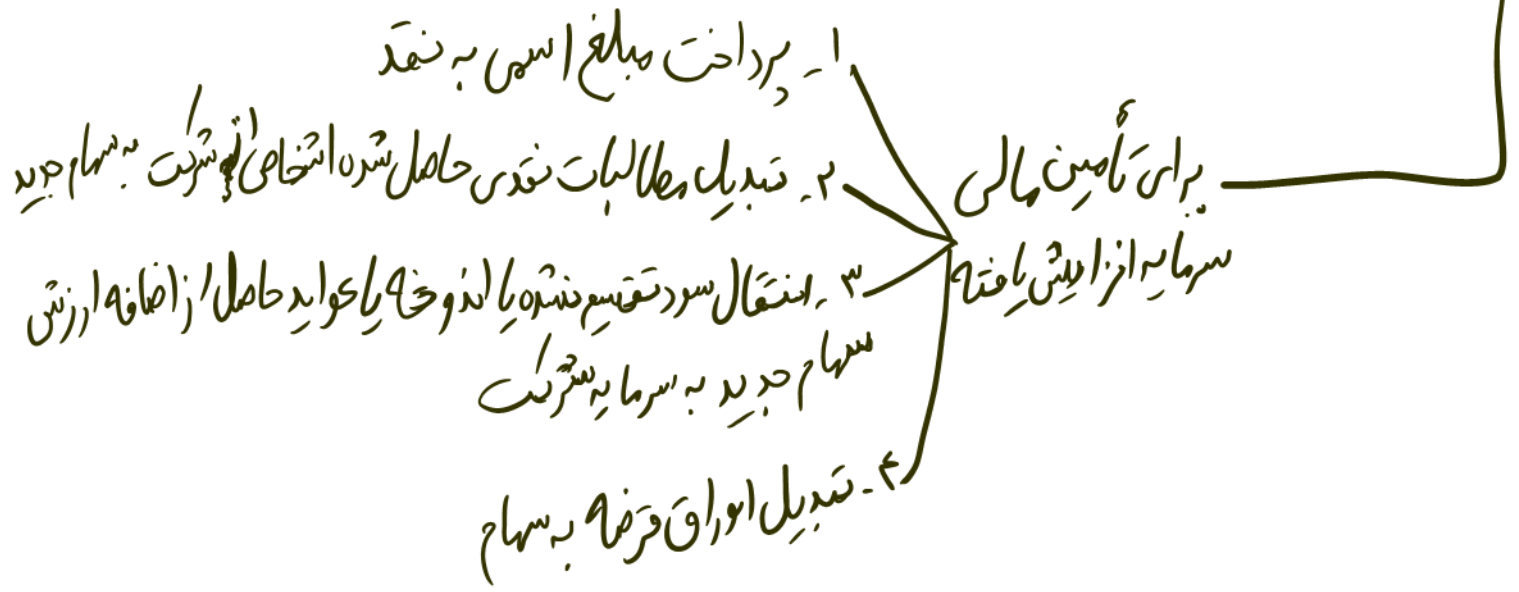 برای تأمین مالی
سرمایه افزایش یافته
۱ـ پرداخت مبلغ اسمی به نقد
۲ـ تبدیل مطالبات نقدی حاصل شده اشخاص از شرکت به سهام جدید
۳ـ انتقال سود تقسیم نشده یا اندوخته یا عواید حاصل از اضافه ارزش
سهام جدید به سرمایه شرکت
۴ـ تبدیل اوراق قرضه به سهام